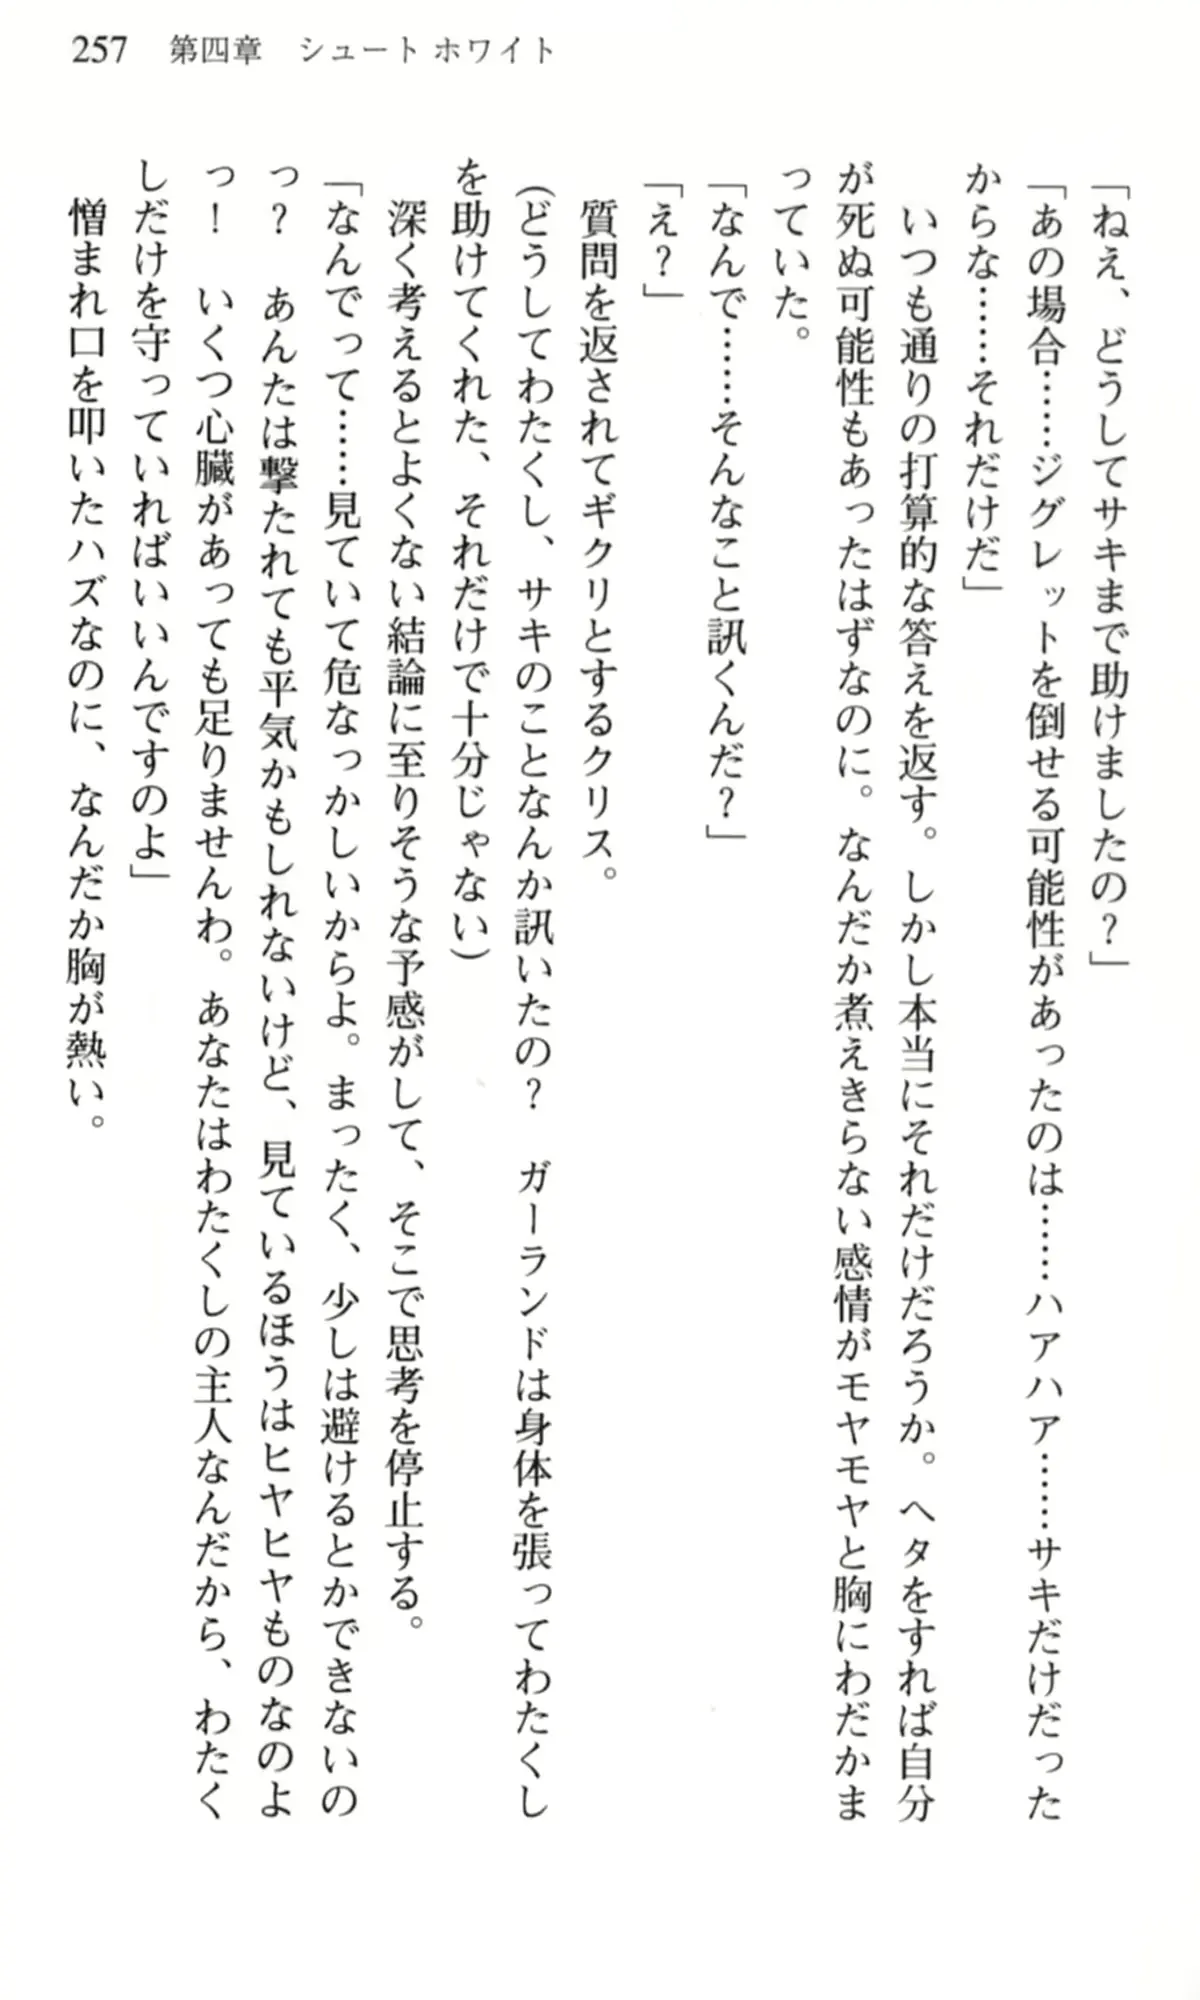 257　第四章　シュート ホワイト
「ねえ、どうしてサキまで助けましたの？」
「あの場合……ジグレットを倒せる可能性があったのは……ハアハア……サキだけだった
からな……それだけだ」
　いつも通りの打算的な答えを返す。しかし本当にそれだけだろうか。ヘタをすれば自分
が死ぬ可能性もあったはずなのに。なんだか煮えきらない感情がモヤモヤと胸にわだかま
っていた。
「なんで……そんなこと訊くんだ？」
「え？」
　質問を返されてギクリとするクリス。
（どうしてわたくし、サキのことなんか訊いたの？　ガーランドは身体を張ってわたくし
を助けてくれた、それだけで十分じゃない）
　深く考えるとよくない結論に至りそうな予感がして、そこで思考を停止する。
「なんでって……見ていて危なっかしいからよ。まったく、少しは避けるとかできないの
っ？　あんたは撃たれても平気かもしれないけど、見ているほうはヒヤヒヤものなのよ
っ！　いくつ心臓があっても足りませんわ。あなたはわたくしの主人なんだから、わたく
しだけを守っていればいいんですのよ」
　憎まれ口を叩いたハズなのに、なんだか胸が熱い。